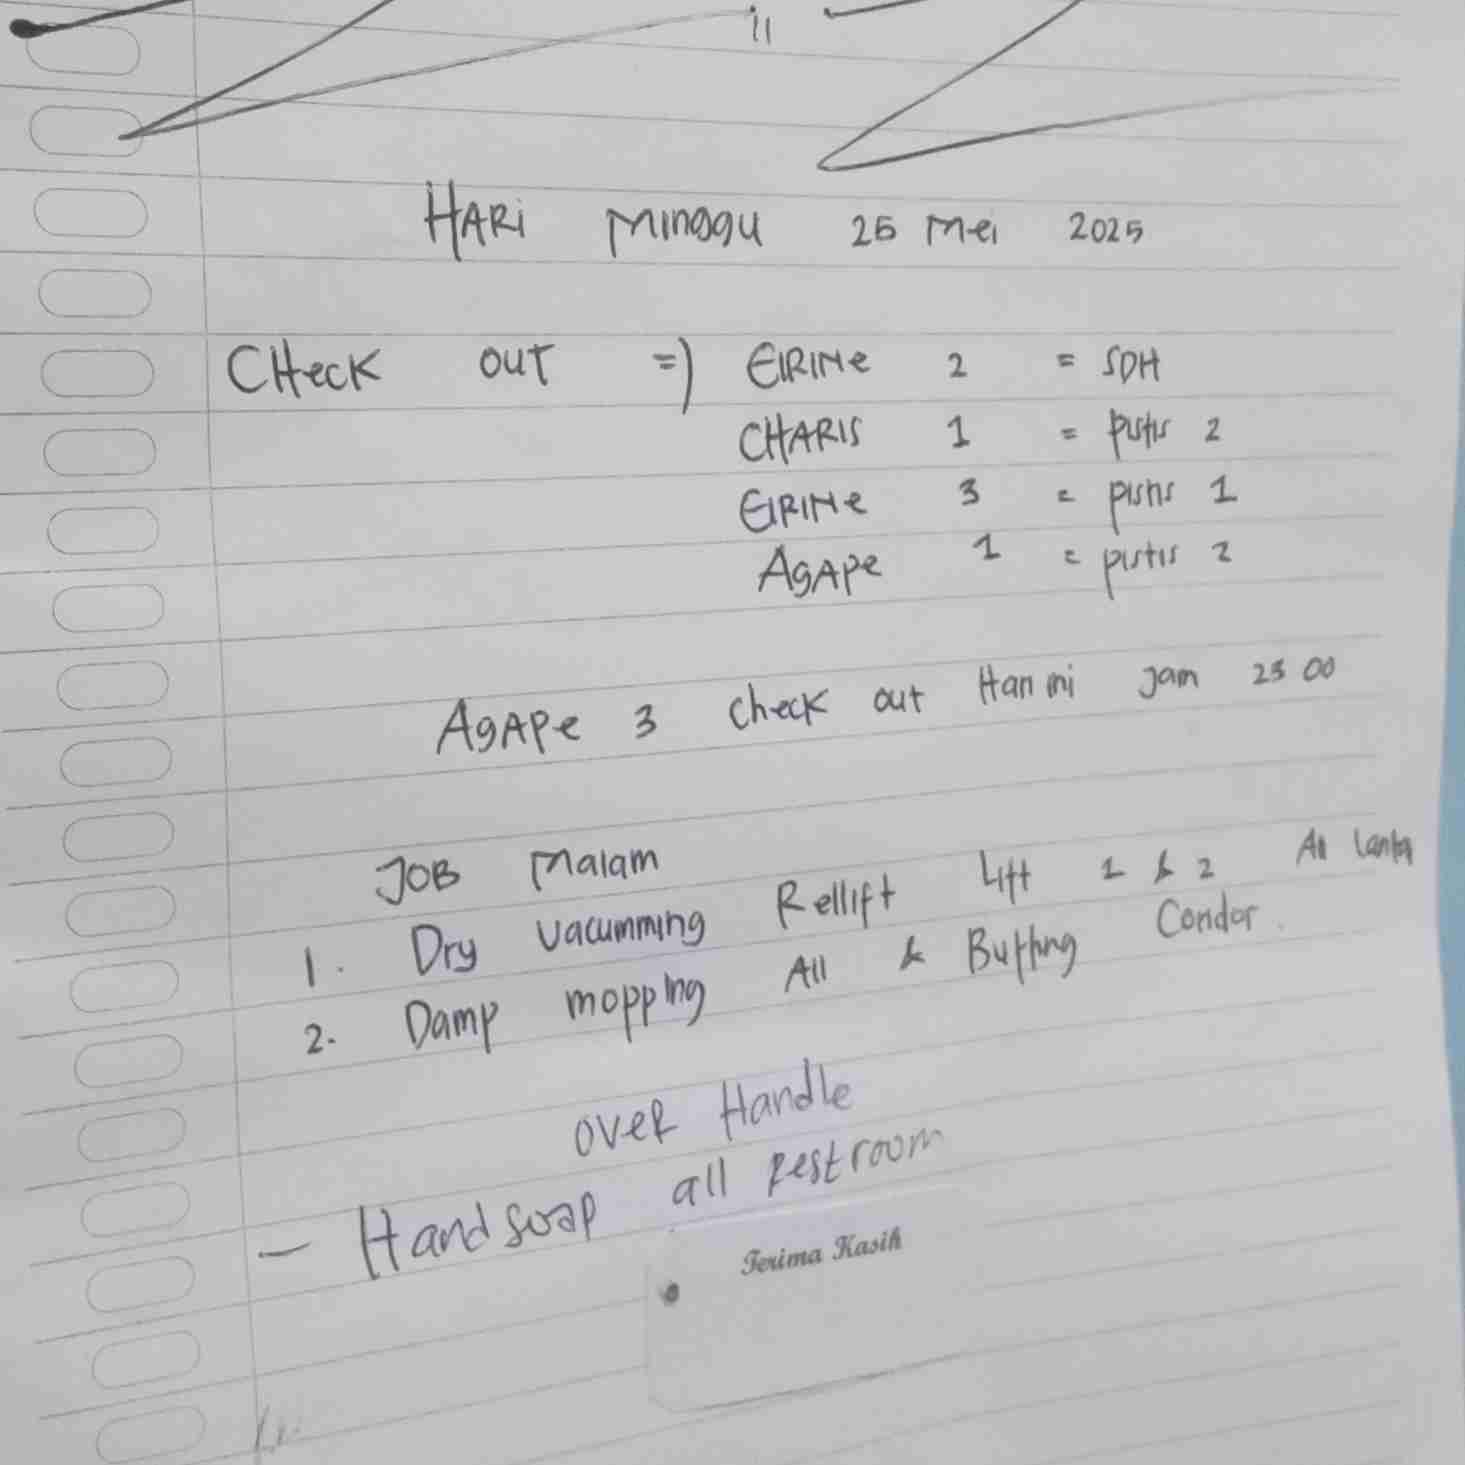 HARi Minggu 25 Mei 2025
CHeck OUT =) EIRINe 2 = SDH
CHARIS 1 = pistis 2
EIRINe 3 = pistis 1
AgApe 1 = pistis 2
AgApe 3 check out Han mi Jam 23 00
JOB Malam
1. Dry vacumming Rellift Lift 1 & 2 All Lantai
2. Damp mopping All & Buffing Condor.
over Handle
- Handsoap all restroom
Terima Kasih